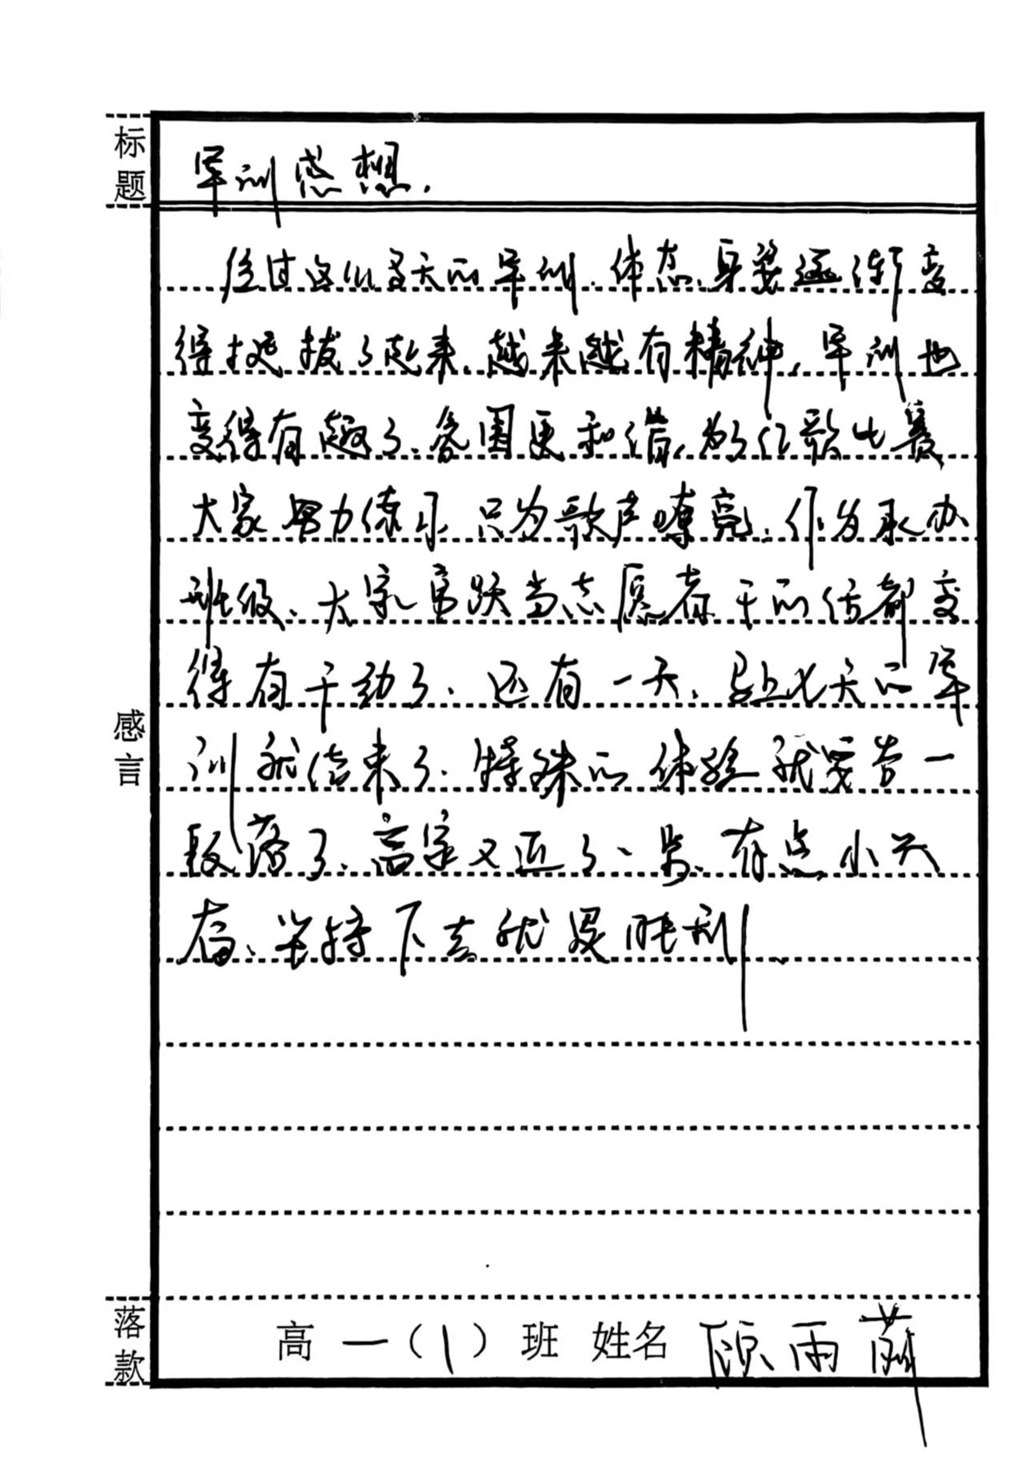 标题
军训感想.
经过这么多天的军训.体态.身姿逐渐变
得挺拔了起来.越来越有精神,军训也
变得有趣了.氛围更和谐,为了红歌比赛
大家努力练习只为歌声嘹亮.作为承办
班级、大家踊跃当志愿者干的活都变
得有干劲了.还有一天.马上七天的军
训就结束了.特殊的体验就要告一
段落了.离家又近了一步.有点小兴
奋、坚持下去就是胜利.
感言
落款
高一(1)班 姓名 顾雨